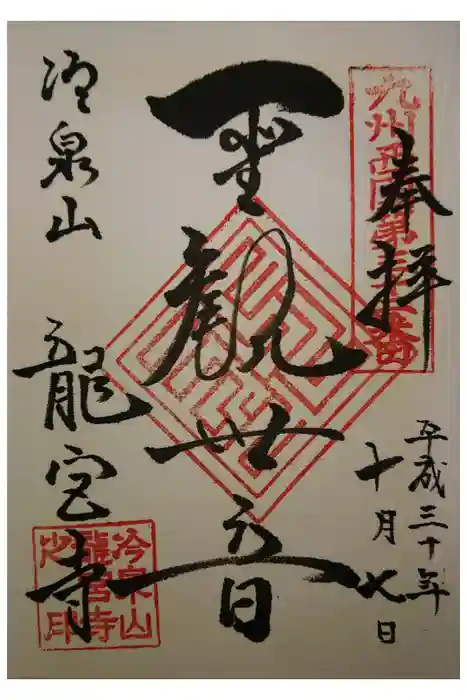 九州西国第三十二番
奉拝
平成三十年
十月七日
聖観世音
冷泉山 龍宮寺
冷泉山
龍宮寺
之印